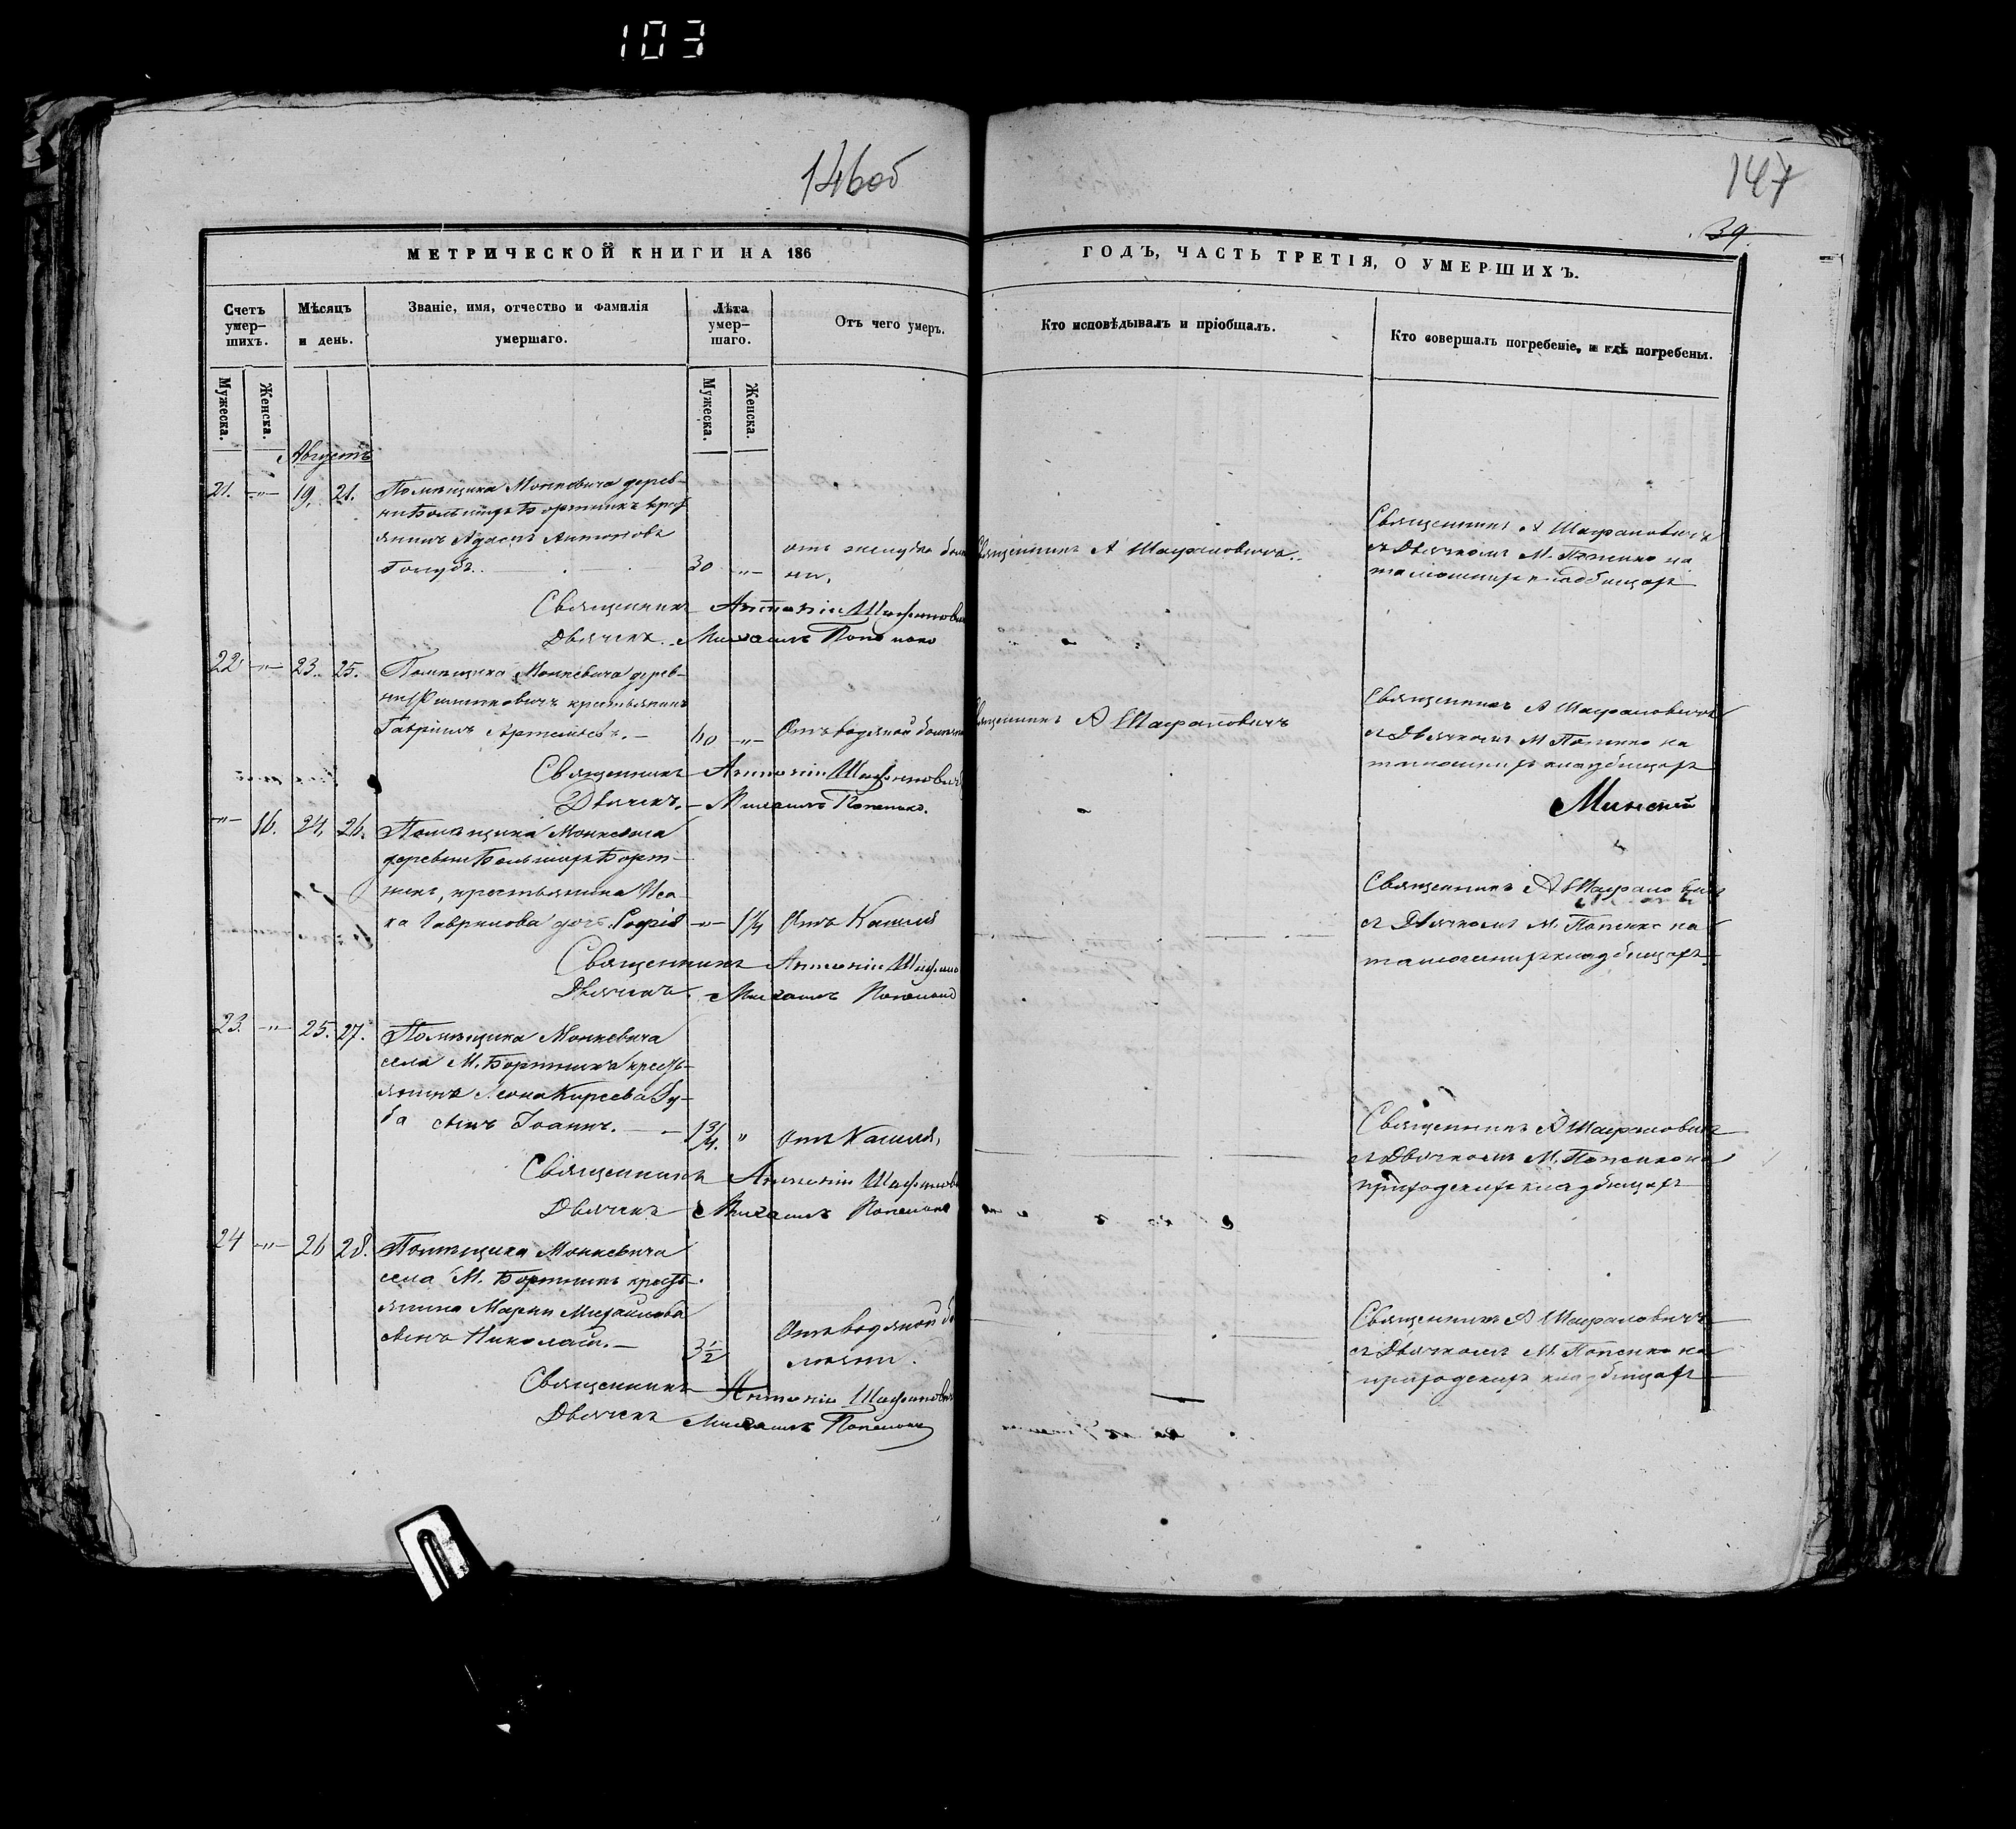 103
146об
147
39.
МЕТРИЧЕСКОЙ КНИГИ НА 186
ГОДЪ, ЧАСТЬ ТРЕТІЯ, О УМЕРШИХЪ.
Счетъ умер–шихъ.
Мѣсяцъ и день.
Званіе, имя, отчество и фамилія умершаго.
Лѣта умер–шаго.
Отъ чего умеръ.
Кто исповѣдывалъ и пріобщалъ.
Кто совершалъ погребеніе, и гдѣ погребены.
Мужеска.
Женска.
Мужеска.
Женска.
Августъ
21. –"– 19. 21. Помѣщика Монкевича дерев-
ни Большихъ Бортникъ крест
янинъ Адамъ Антоновъ
Голубъ. 30 –"–
Священникъ А Шафрановичъ.
Священникъ А Шафрановичъ
съ Дьячкомъ М. Попенко на
тамошнемъ кладбищѣ
Священникъ Антоній Шафранович
Дьячекъ Михаилъ Попенко
22 –"– 23. 25. Помѣщика Монкевича дерев-
ни крестьянинъ
Гавріилъ Артемьевъ. – 60 –"– Отъ водяной болѣзни
Священникъ А Шафрановичъ
Священникъ А Шафрановичъ
съ Дьячкомъ М Попенко на
тамошнемъ кладбищѣ
Священникъ Антоній Шафрановичъ
Дьячекъ. – Михаилъ Попенко.
Минскій
–"– 16. 24. 26. Помѣщика Монкевича
деревни Большихъ Борт-
никъ, крестьянина Иса-
ка Гаврилова дочь Софія –"– 1¼ Отъ Кашля
Священникъ А Шафранович
съ Дьячкомъ М. Попенко на
тамошнемъ кладбищѣ
Священникъ Антоній Шафрано
Дьячекъ. Михаилъ Попенко
23. –"– 25. 27. Помѣщика Монкевича
села М. Бортникъ кресть-
янина Леона Киреева Гу-
ба сынъ Іоаннъ. – 1¾. " Отъ Кашля,
Священникъ А Шафрановичъ
съ Дьячкомъ М. Попенко на
приходскомъ кладбищѣ
Священникъ Антоній Шафранов
Дьячекъ Михаилъ Попенко
24 –"– 26 28. Помѣщика Монкевича
села М. Бортникъ кресть-
янина Марки Михайлова
сынъ Николай. – 3½ Отъ водяной бо
лѣзни.
Священникъ А Шафрановичъ
съ Дьячкомъ М. Попенко на
приходскомъ кладбищѣ
Священникъ Антоній Шафранович
Дьячекъ Михаилъ Попенко